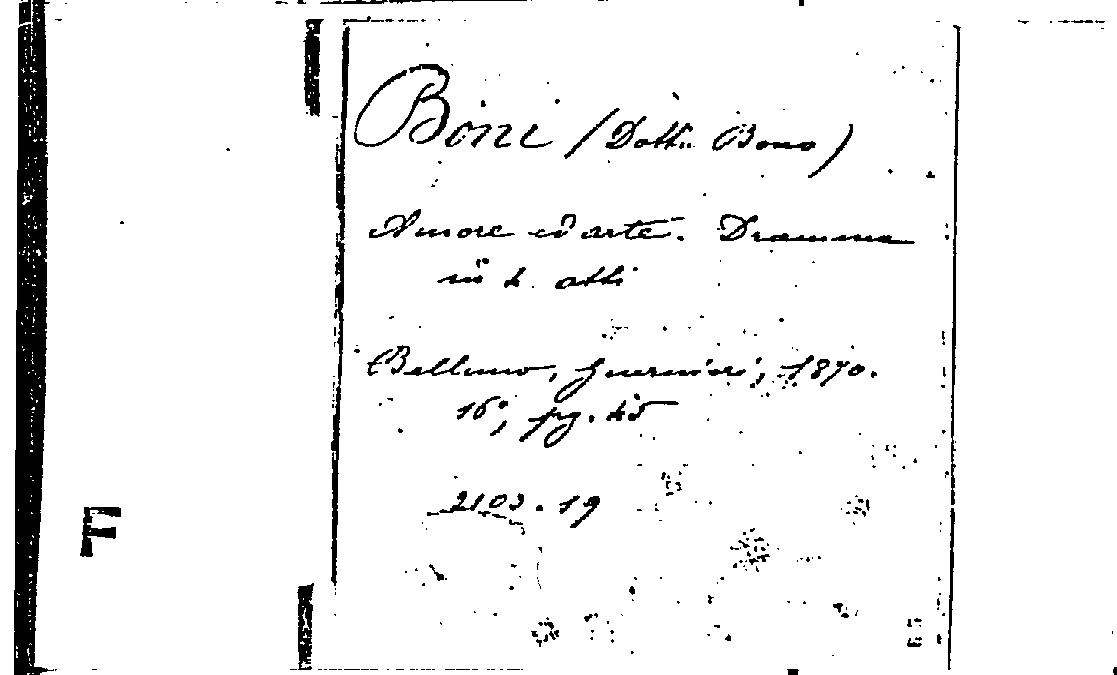 Boni (Dott. Bono)
Amore ed arte. Dramma
in 4 atti
Belluno, Guernieri, 1870.
16°, pg. 45
2103.19
F